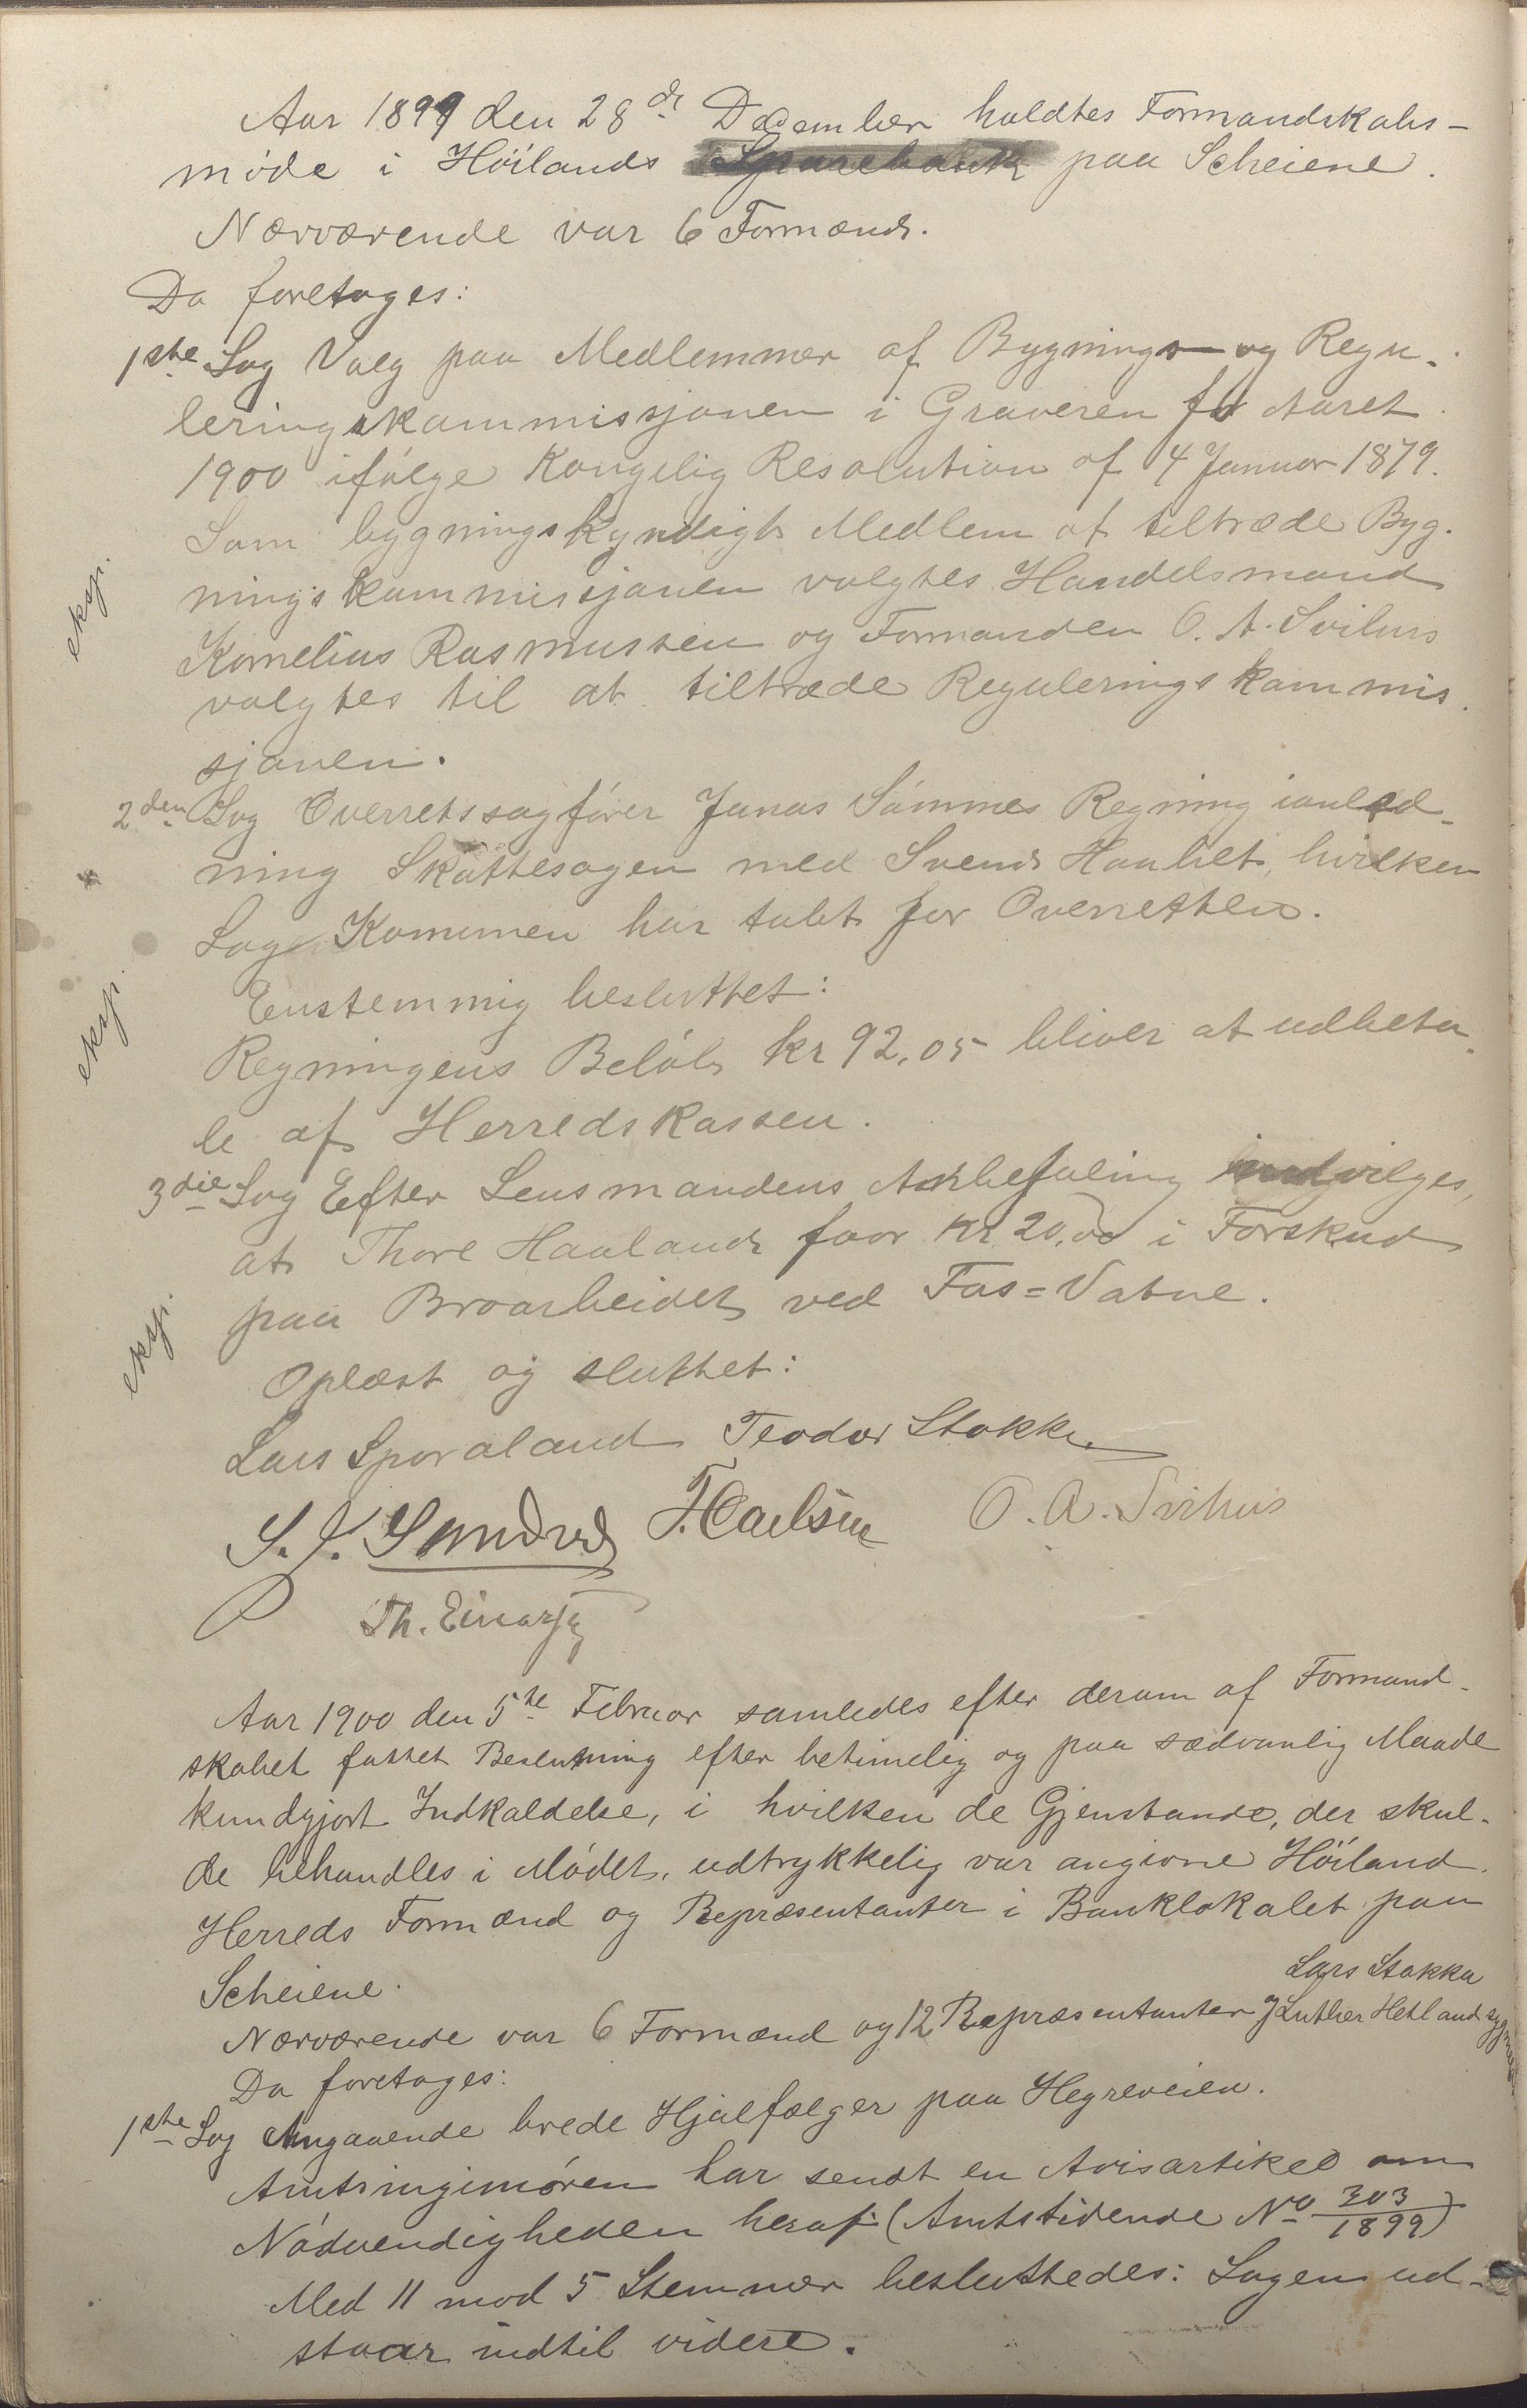 Aar 1899 den 28de December holdtes Formandskabs-
møde i Höilands Sparebank paa Scheiene.
Nærværende var 6 Formænd.
Da foretoges:
1ste Sag Valg paa Medlemmer af Bygnings- og Regu-
leringskommissjonen i Graveren for Aaret
1900 ifølge Kongelig Resolution af 4 Januar 1879.
Som bygningskyndigt Medlem at tiltræde Byg-
eksp.
ningskommissjonen valgtes Handelsmand
Kornelius Rasmussen og Formanden O. A. Svihus
valgtes til at tiltræde Reguleringskommis-
sjonen.
2den Sag Overretssagfører Jonas Sømmes Regning ianled-
ning Skattesagen med Svend Haabet, hvilken
Sag Komunen har tabt for Overretten.
Enstemmig besluttet:
eksp.
Regningens Beløb kr 92,05 bliver at udbeta-
le af Herredskassen.
3die Sag Efter Lensmandens Anbefaling indvilges,
at Thore Haaland faar kr 20,00 i Forskud
paa Broarbeidet ved Fos=Vatne.
eksp.
Oplæst og sluttet:
Lars Sporaland Teodor Stokka
S. J. Sandved T. Carlsen O. A. Svihus
Th. Einarsen
Aar 1900 den 5te Februar samledes efter derom af Formand-
skabet fattet Beslutning efter betimelig og paa sædvanlig Maade
kundgjort Indkaldelse, i hvilken de Gjenstande, der skul-
de behandles i Mødet, udtrykkelig var angivne Höiland
Herreds Formænd og Repræsentanter i Banklokalet paa
Scheiene.
Lars Stokka
Nærværende var 6 Formænd og 12 Repræsentanter og Luther Hetland
Da foretoges:
1ste Sag Angaaende brede Hjulfælger paa Hegreveien.
Amtsingeniøren har sendt en Avisartikel om
Nødvendigheden heraf (Amtstidende No 303/1899)
Med 11 mod 5 Stemmer besluttedes: Sagen ud-
staar indtil videre.